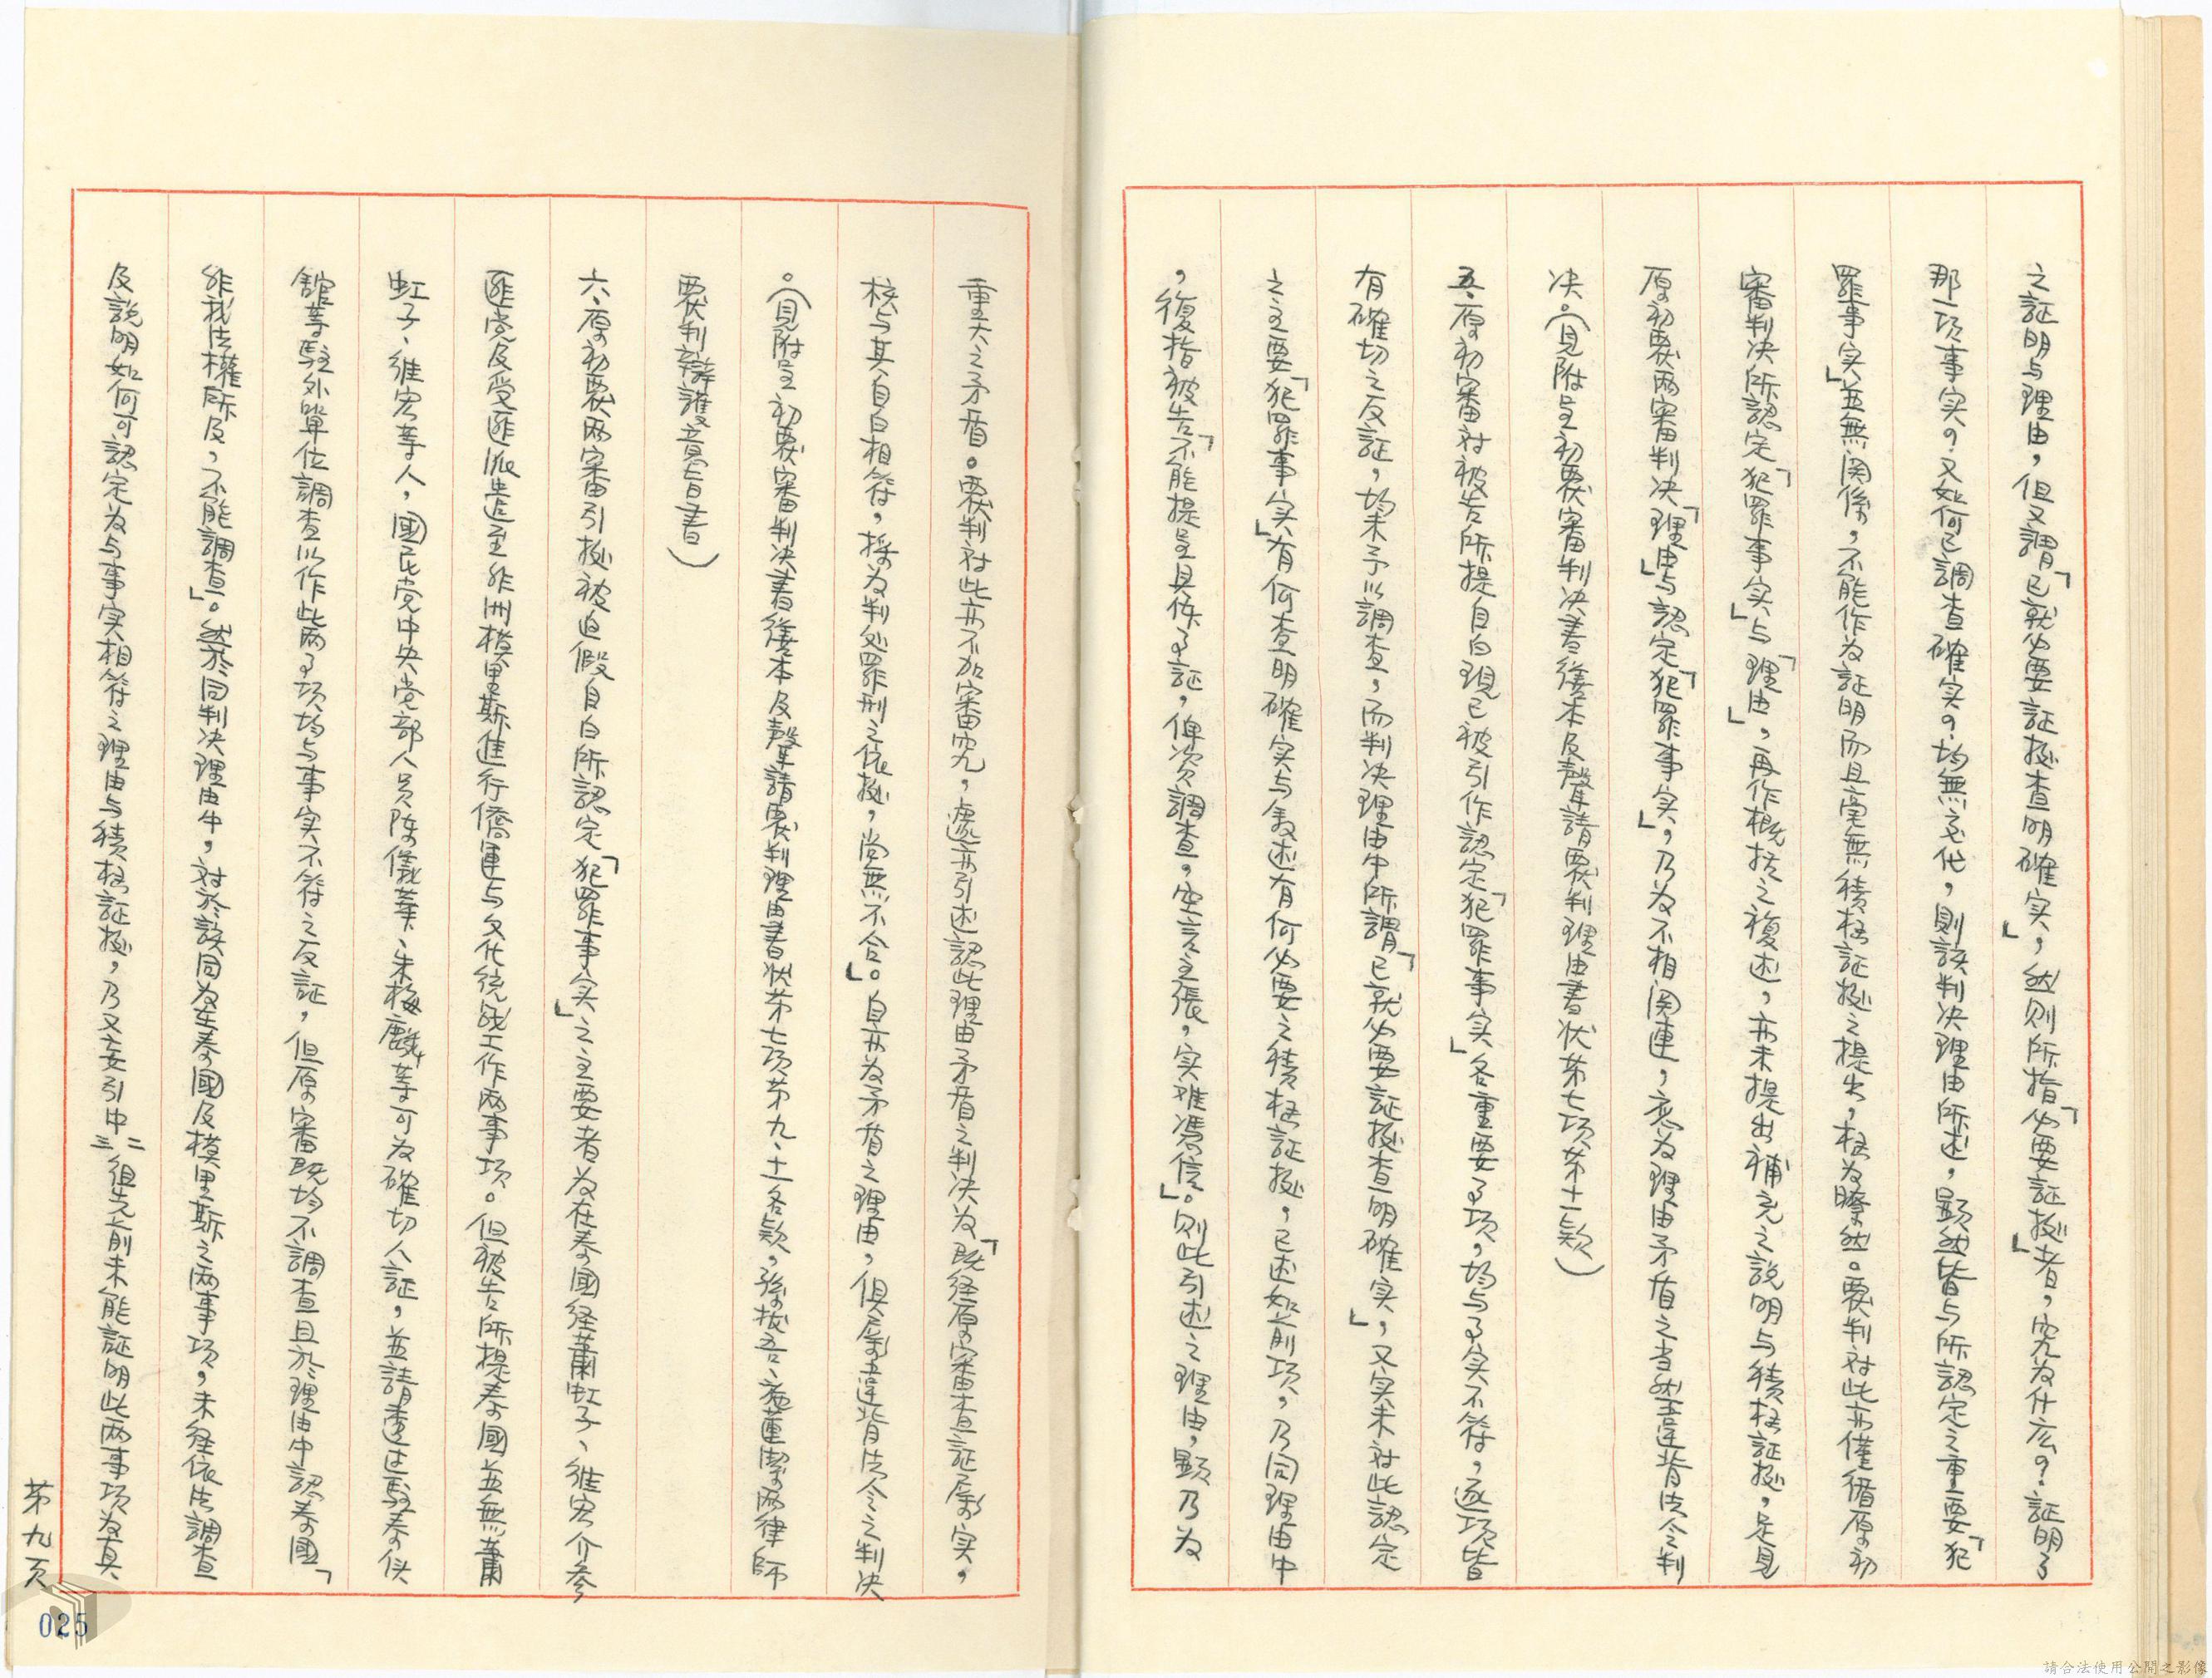 之証明与理由，但又謂「已就必要証据查明確实」，然则所指「必要証据」者，究为什么？証明了
那一项事实？又如何已調查確实？均無交代，則該判决理由所述，显然皆与所認定之重要「犯
罪事实」並無関係，不能作为証明而且毫無積极証据之提出，极为瞭然。覆判对此亦僅循原初
審判决所認定「犯罪事实」与「理由」，再作概括之複述，亦未提出補充之說明与積极証据，足見
原初覆两審判决「理由」与認定「犯罪事实」，乃为不相関連，应为理由矛盾之当然違背法令判
决。（見附呈初覆審判决書繕本及聲請覆判理由書状第七项第十一款）
五、原初審对被告所提自白現已被引作認定「犯罪事实」各重要事项，均与事实不符，逐项皆
有確切之反証，均未予以調查，而判决理由中所謂「已就必要証据查明確实」，又实未对此認定
之主要「犯罪事实」有何查明確实与叙述有何必要之積极証据，已述如前项，乃同理由中
，復指被告「不能提呈具体事証，俾资調查，空言主張，实难憑信」。则此引述之理由，顯乃为
重大之矛盾。覆判对此亦不加審究，遽亦引述認此理由矛盾之判决为「既经原審查証属实，
核与其自白相符，採为判処罪刑之依据，尚無不合」。自亦为矛盾之理由，俱属違背法令之判决
。（見附呈初覆審判决書繕本及聲請覆判理由書状第七项第九、十各款，孫拔吾、施蕙潔两律師
覆判辯護意旨書）
六、原初覆两審引据被迫假自白所認定「犯罪事实」之主要者为在泰國经蕭虹子、維宏介参
匪党及受匪派遣至非洲模里斯進行僑運与文化統战工作两事项。但被告所提泰國並無蕭
虹子、維宏等人，國民党中央党部人员陈儀華、朱梅麟等可为確切人証，並請透过駐泰的使
舘等駐外單位調查以作此两事项均与事实不符之反証，但原審既均不調查且於理由中認泰國「
非我法權所及，不能調查」。然於同判决理由中，对於該同为在泰國及模里斯之两事项，未经依法調查
及說明如何可認定为与事实相符之理由与積极証据，乃又妄引中二三組先前未能証明此两事项为真
第九页
025
請合法使用公開之影像